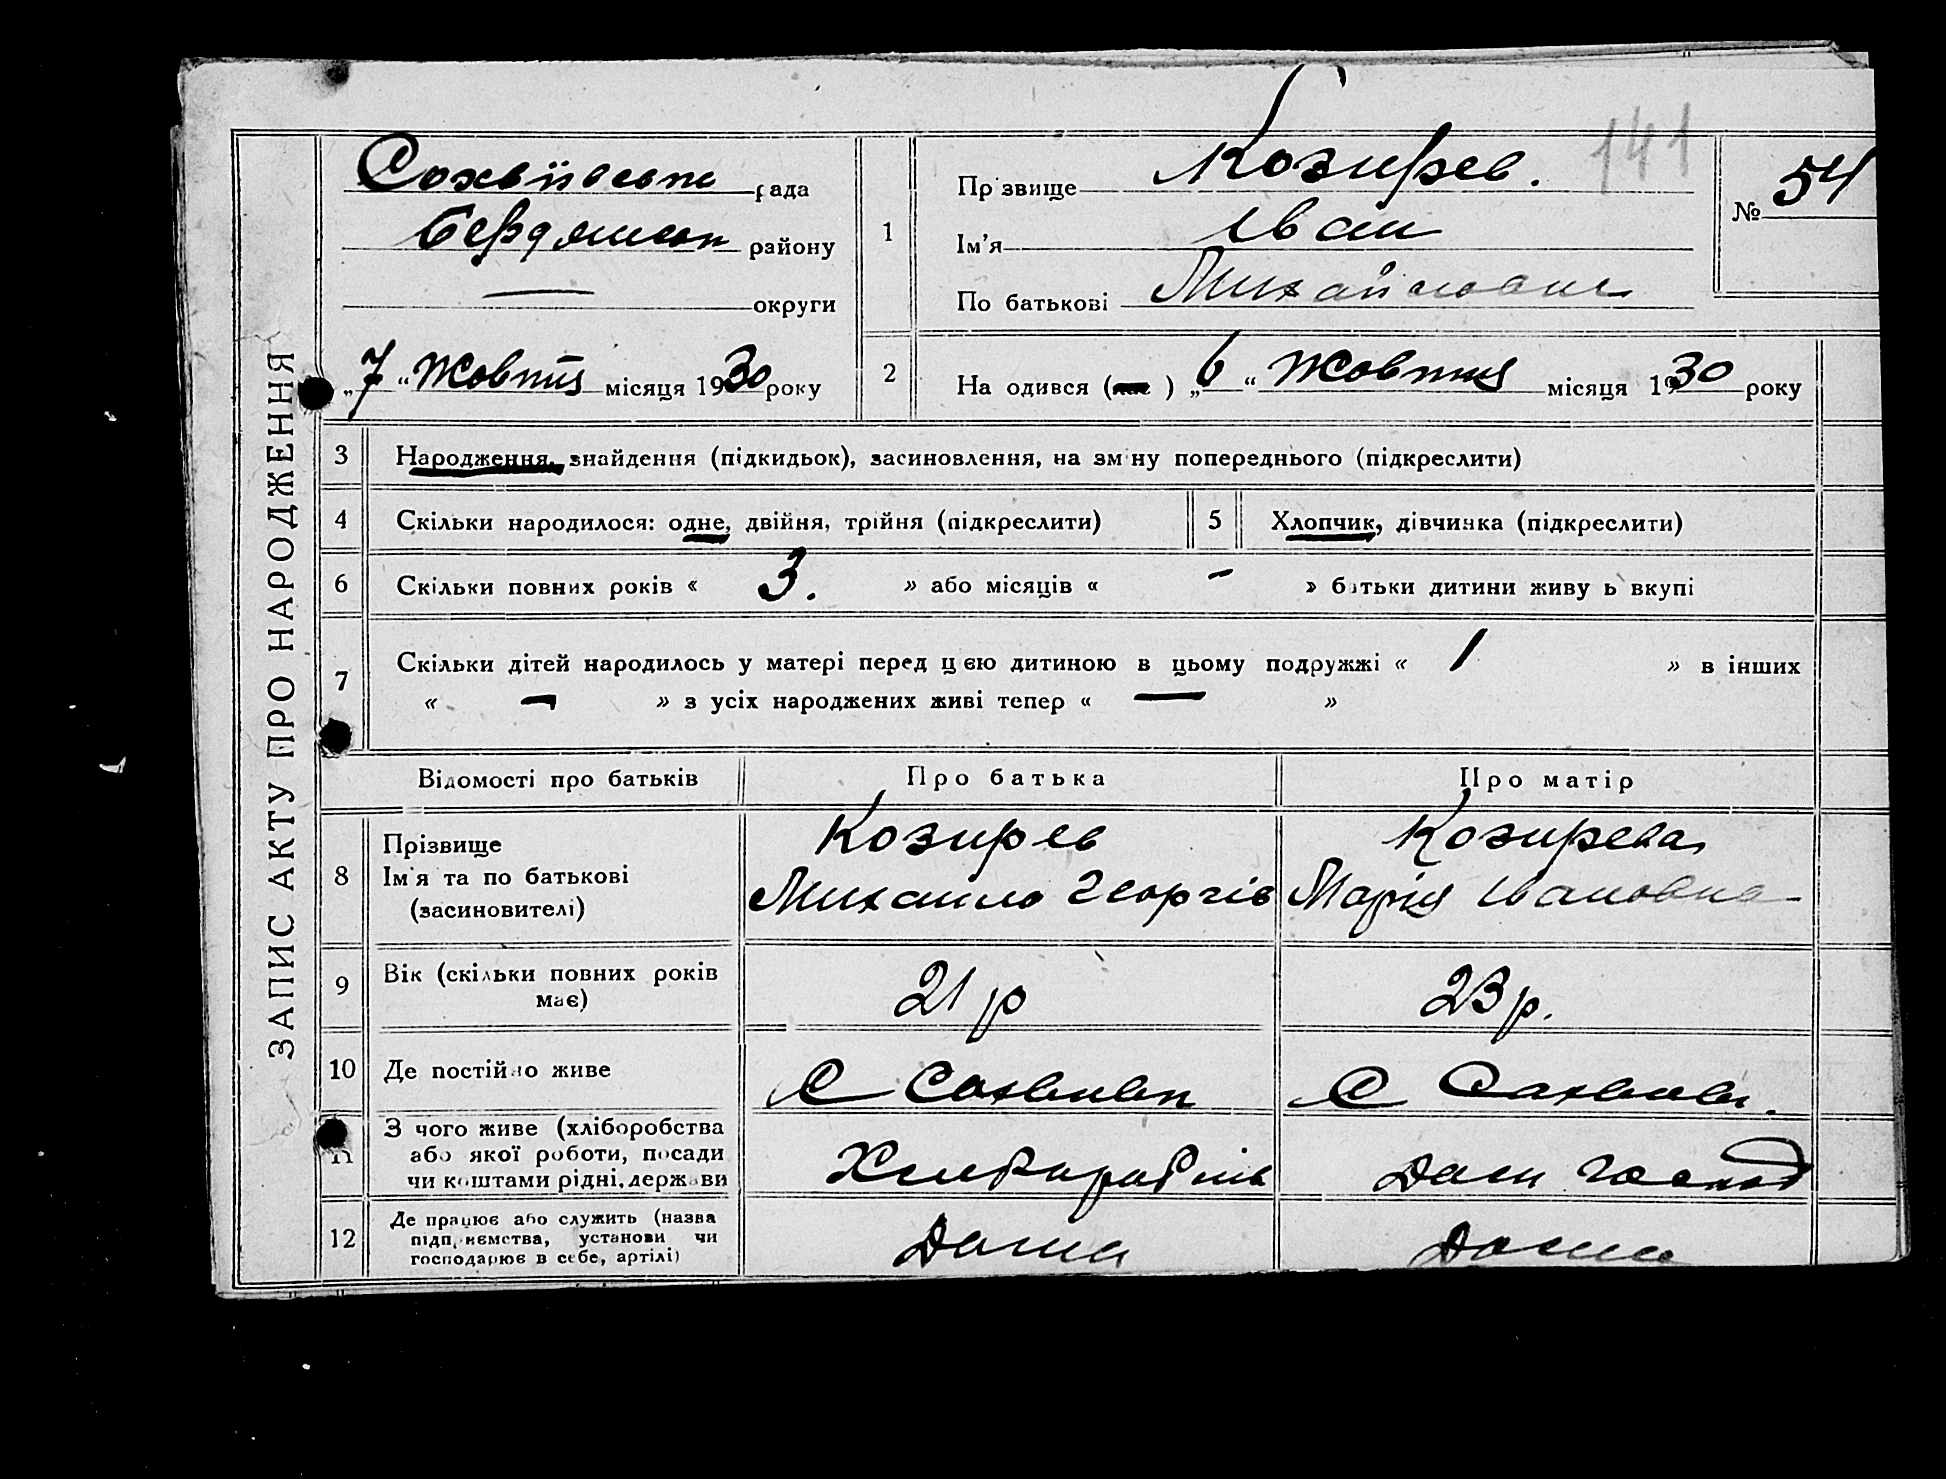 ЗАПИС АКТУ ПРО НАРОДЖЕННЯ
рада
району
округи
„7“ Жовтня місяця 1930 року
141
№ 54
1
Прізвище Козирев.
Ім'я Іван
По батькові Михайлович
2
На одився ( ) „6“ Жовтня місяця 1930 року
3 Народження, знайдення (підкидьок), засиновлення, на зміну попереднього (підкреслити)
4 Скільки народилося: одне, двійня, трійня (підкреслити)
5 Хлопчик, дівчинка (підкреслити)
6 Скільки повних років « 3. » або місяців « - » батьки дитини живу ь вкупі
7 Скільки дітей народилось у матері перед цією дитиною в цьому подружжі « 1 » в інших
« — » з усіх народжених живі тепер « — »
Відомості про батьків
Про батька
Про матір
8
Прізвище
Ім'я та по батькові
(засиновителі)
Козирев
Михаило Георгіев
Козирева
Марія Івановна
9
Вік (скільки повних років
має)
21 р
23 р.
10 Де постійно живе
С
С
11
З чого живе (хліборобства
або якої роботи, посади
чи коштами рідні, держави
Дом. господ
12
Де працює або служить (назва
підприємства, установи чи
господарює в себе, артілі)
Дома
Дома